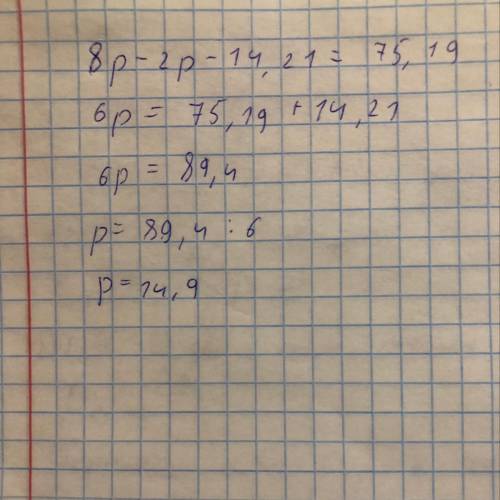 8p - 2p - 14,21 = 75,19
6p = 75,19 + 14,21
6p = 89,4
p = 89,4 : 6
p = 14,9